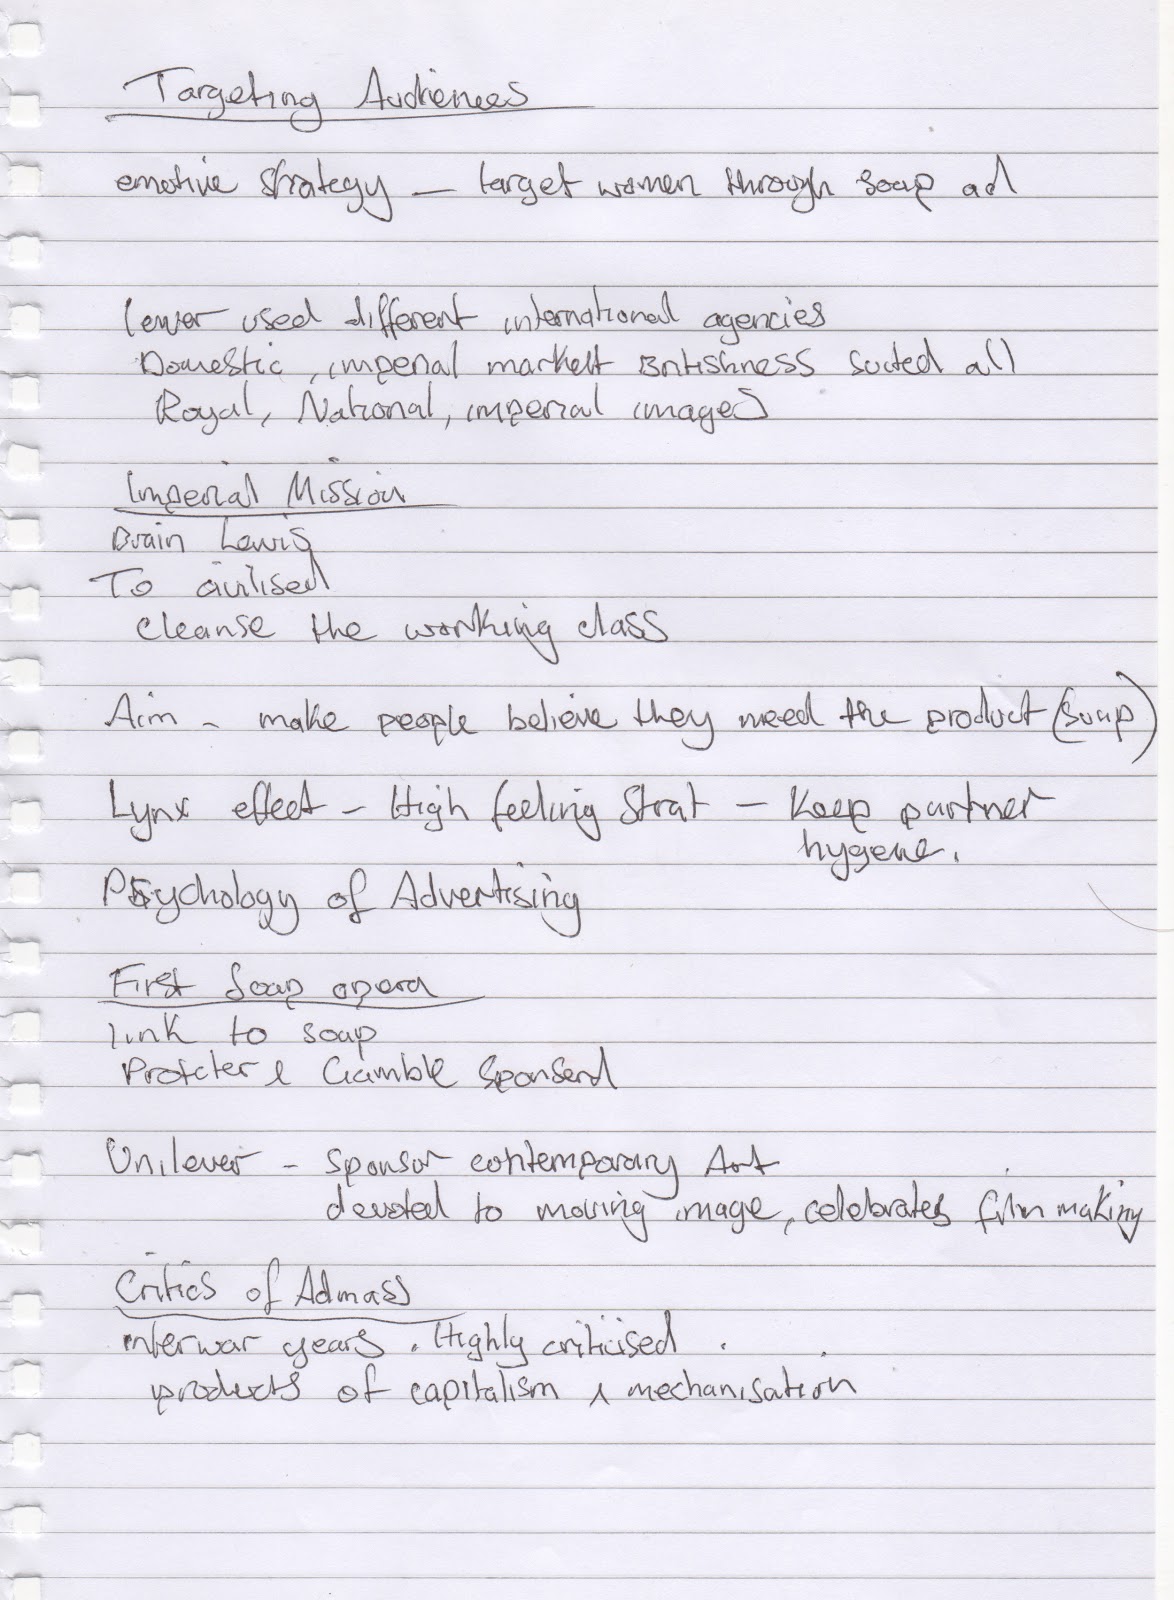 Targeting Audiences
emotive strategy - target women through soap ad
lever used different international agencies
Domestic, imperial markett Britishness suited all
Royal, National, imperial images
Imperial Mission
Brain Lewis
To civilised
cleanse the working class
Aim - make people believe they need the product (soap)
Lynx effect - High feeling Strat - Keep partner
hygene.
Psychology of Advertising
First Soap opera
link to soap
Protcter & Gamble Sponserd
Unilever - sponsor contemporary Art
devoted to moving image, celebrates film making
Critics of Admass
interwar years. Highly criticised.
products of capitalism & mechanisation